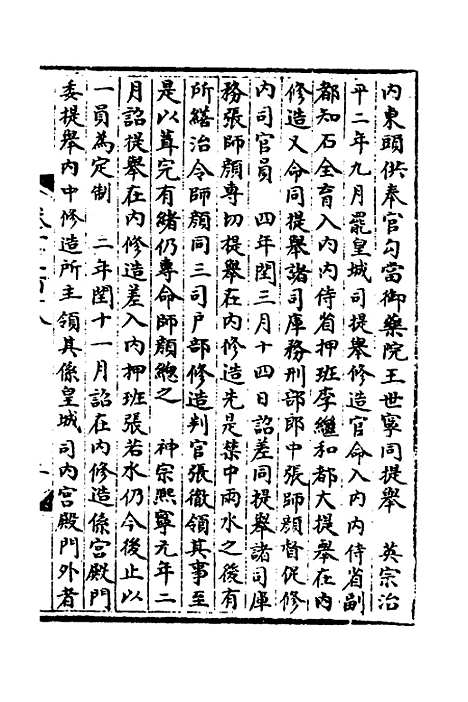 内東頭供奉官勾當御藥院王世寧同提舉　英宗治
平二年九月罷皇城司提舉修造官命入内内侍省副
都知石全育入内内侍省押班李繼和都大提舉在内
修造又命同提舉諸司庫務刑部郎中張師顔督促修
内司官員　四年閏三月十四日詔差同提舉諸司庫
務張師顔專切提舉在内修造先是禁中雨水之後有
所繕治令師顔同三司户部修造判官張徽領其事至
是以葺完有緒仍專命師顔總之　神宗熙寧元年二
月詔提舉在内修造差入内押班張若水仍今後止以
一員為定制　二年閏十一月詔在内修造係宫殿門
委提舉内中修造所主領其係皇城司内宫殿門外者